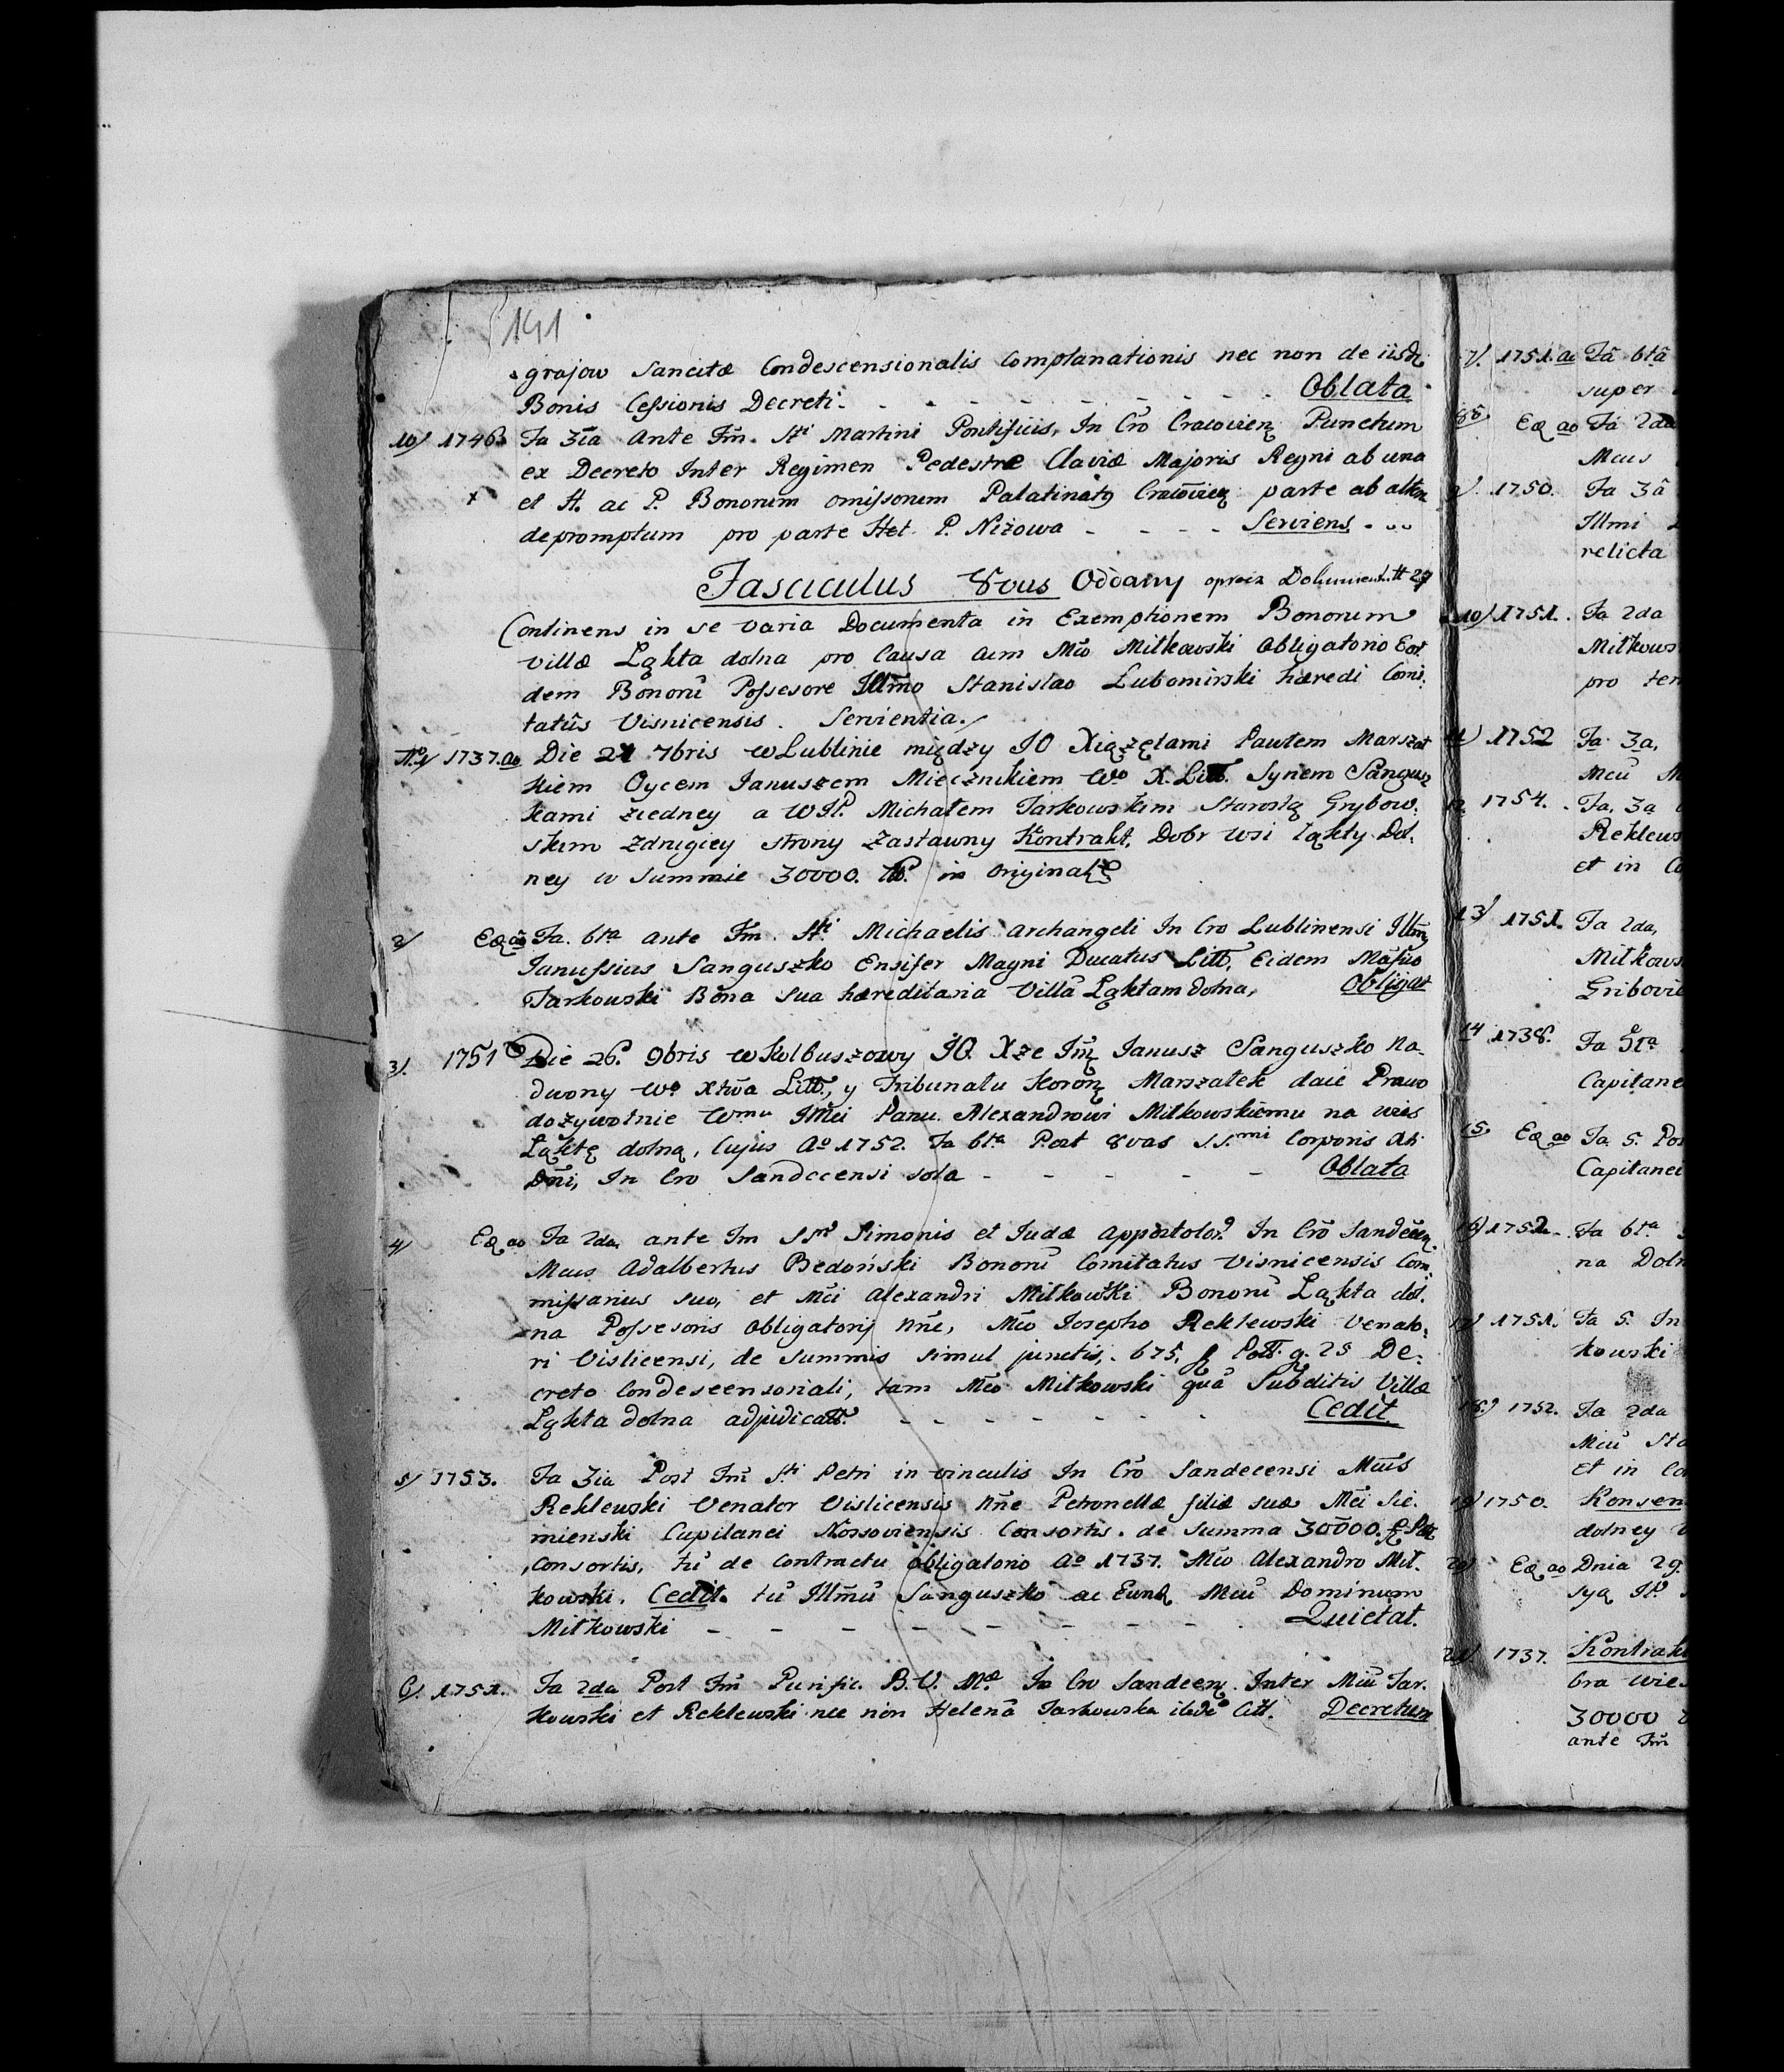 141
grajow Sancitæ Condescensionalis Complanationis nec non de iisdē
Bonis Cessionis Decreti. - - - - - - - Oblata.
10) 1746. Fa 3ia Ante Fm̄. Sti Martini Pontificis, In Cro Cracovien Punctum
ex Decreto Inter Regimen Pedestræ Claviæ Majoris Regni ab una
x et H. ac P. Bonorum omissorum Palatinatg Cracovien parte ab altera
depromptum pro parte Het. P. Niżowa - - - - Serviens - ..
Fasciculus 8vus Oddany oprocz Dokument. # 27
Continens in se varia Documenta in Exemptionem Bonorum
villæ Łąkta dolna pro Causa cum Mco Miłkowski Obligatorio Eor.
dem Bonorū Possesore Illm̄o Stanislao Lubomirski hæredi Comi.
tatûs Visnicensis. Servientia.
No 1) 1737. ao Die 27 7bris w Lublinie między JO Xiążętami Pawłem Marszał
kiem Oycem Januszem Miecznikiem Wo X. Litt. Synem Sangusz
kami ziedney a WJP. Michałem Tarkowskim Starostą Grybow.
skim zdrugiey strony Zastawny Kontrakt, Dobr Wsi Łąkty Dol.
ney w Summie 30000. in Originali
2) Eo ao Fa. 6ta ante Fm. Sti Michaelis Archangeli In Cro Lublinensi Illm̄g
Janussius Sanguszko Ensifer Magni Ducatus Litt. Eidem Mgfico
Tarkowski Bona sua hæreditaria Villā Łąktam dolna, Obligat
3). 1751 Die 26. 9bris w Kolbuszowy JO. Xże Jm̄ Janusz Sanguszko Na.
dworny Wo Xtwa Litt., y Tribunału Koron Marszałek daie Prawo
dożywotnie Wmu JMci Panu Alexandrowi Miłkowskiemu na wies
Łąktę dolną, Cujus Ao 1752. Fa 6ta Post 8vas SSmi Corporis Xti
Dni, In Cro Sandecensi sola - - - - - Oblata
4) Eo ao Fa 2da ante Fm SSrū Simonis et Judæ Appostolor. In Crō Sandecen.
Mcus Adalbertus Bedoński Bonorū Comitatus Visnicensis Com.
missarius suo, et Mci Alexandri Miłkowski Bonorū Łąkta dol.
na Possesoris Obligatorij nn̄e, Mco Josepho Reklewski Venato.
ri Visliciensi, de Summis simul junctis, 675, f Poll. g. 25 De.
creto Condescensoriali, tam Mco Miłkowski quā Subditis Villæ
Łąkta dolna adjudicatt. - - - - - - - Cedit
5) 1753. Fa 3ia Post Fm̄ Sti Petri in vinculis In Crō Sandecensi Mcus
Reklewski Venator Vislicensis nn̄e Petronellæ filiæ suæ Mci Sie.
mienski Capitanei Nossoviensis Consortis. de Summa 30000. f Pol
Consortis, tū de Contractu obligatorio Ao 1737. Mco Alexandro Mił.
kowski. Cedit. tū Illm̄ū Sanguszko ac Eund Mcū Dominum
Miłkowski - - - - - - - - - Quietat.
6). 1751. Fa 2da Post Fm̄ Purific. B. V. Mæ In Cro Sandecen. Inter Mcū Tar.
kowski et Reklewski nec non Helenā Tarkowska Citt. Decretum
7). 1751. ao Fâ 6tâ
super
8. Eo ao Fâ 2da
Mcus
9). 1750. Fa 3â
Illmi
relicta
10) 1751. Fa 2da
Miłkows
pro ter
11) 1752 Fa 3a,
Mcū M
12. 1754. Fa. 3a
Reklews
et in Co
13) 1751. Fa 2da,
Miłkows
Gribovie
14 1738. Fa 5ta
Capitane
15. Eo ao Fa 5. Pos
Capitanei
16) 1752. Fa 6ta
na Doln
17) 1751. Fa 5. In
kowski
18.) 1752. Fa 2da
Mcū Sta
Et in Co
19) 1750. Konsen
dolney
20) Eo ao Dnia 29.
syą
21) 1737. Kontrakt
bra wie
30000
ante Fm̄